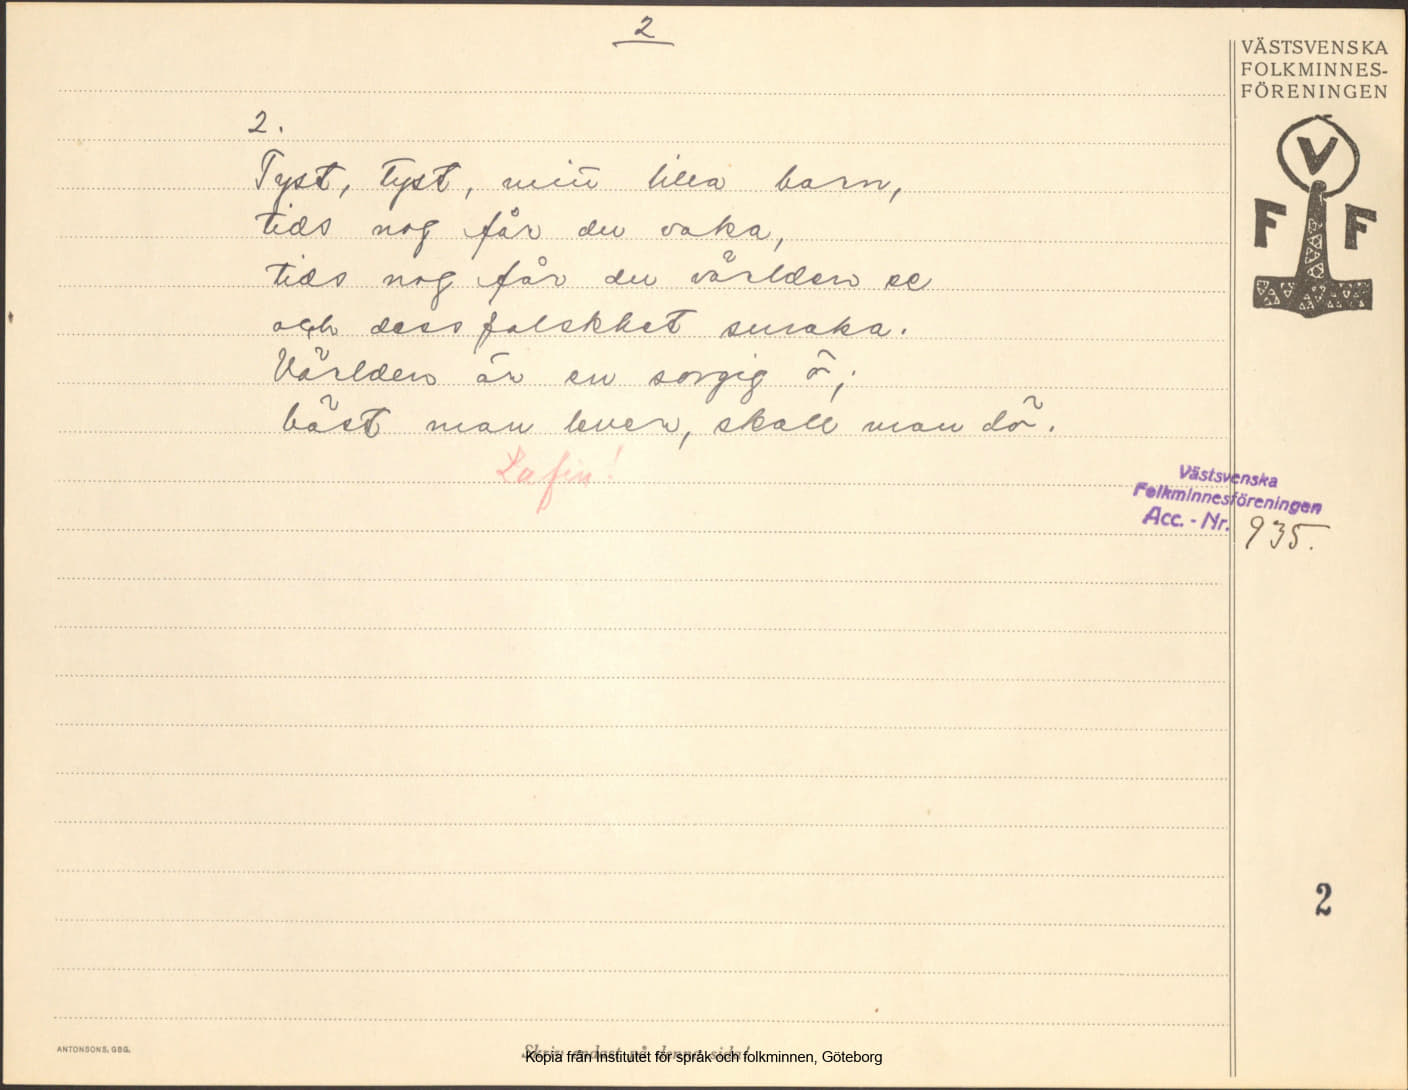 2
VÄSTSVENSKA
FOLKMINNES-
FÖRENINGEN
V
F F
2.
Tyst, tyst, min lilla barn,
tids nog får du vaka,
tids nog får du världen se
och dess falskhet smaka.
Världen är en sorgig ö;
bäst man lever, skall man dö.
Västsvenska
Folkminnesföreningen
Acc. - Nr. 935.
2
ANTONSONS, GBG.
Skriv endast på denna sida!
Kopia från Institutet för språk och folkminnen, Göteborg